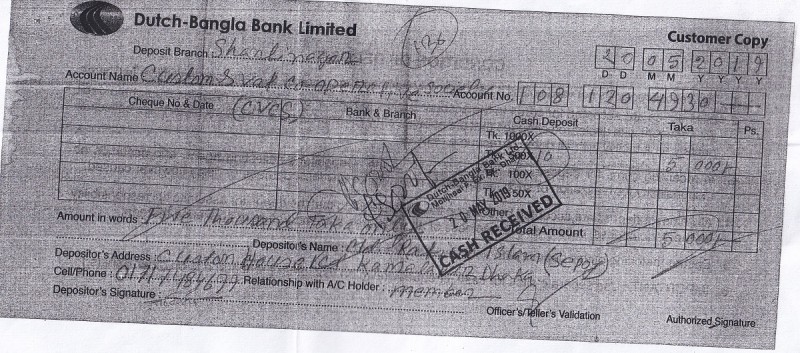 Dutch-Bangla Bank Limited
Customer Copy
126
Deposit Branch Shantinagar
20 05 2019
D D M M Y Y Y Y
Account Name Custom & Vat Co-operative Society
Account No. 108 120 4930
Cheque No & Date
(CVCS)
Bank & Branch
Cash Deposit
Taka
Ps.
Tk. 1000X
Tk. 500X 10
5 000/-
Tk. 100X
Tk. 50X
Other
Dutch-Bangla Bank Ltd.
20 MAY 2019
CASH RECEIVED
Amount in words Five Thousand Taka only
Total Amount
5 000/-
Depositor's Name Md. Islam (Sepoy)
Depositor's Address Custom House Dhaka
Cell/Phone :
Relationship with A/C Holder : member
Depositor's Signature :
Officer's/Teller's Validation
Authorized Signature